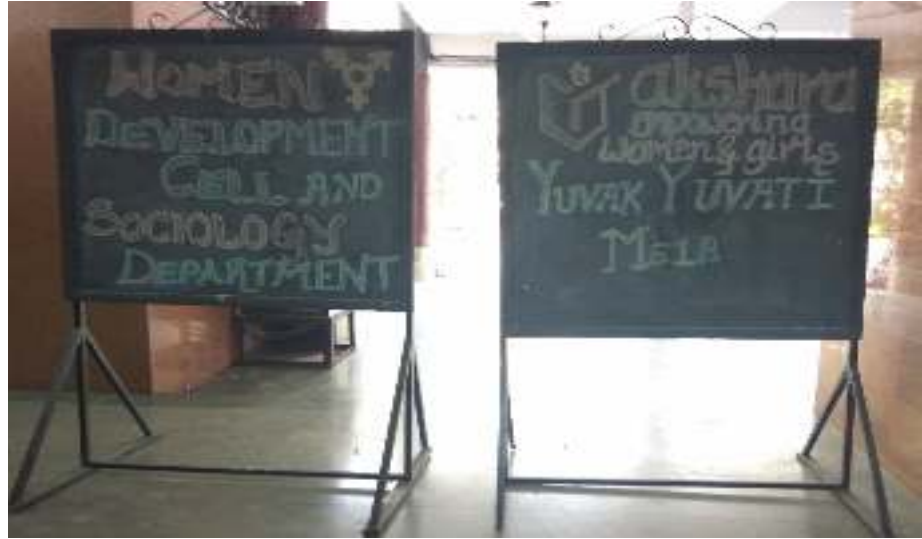 WOMEN
DEVELOPMENT
CELL AND
SOCIOLOGY
DEPARTMENT
akshara
empowering
women & girls
YUVAK YUVATI
MELA